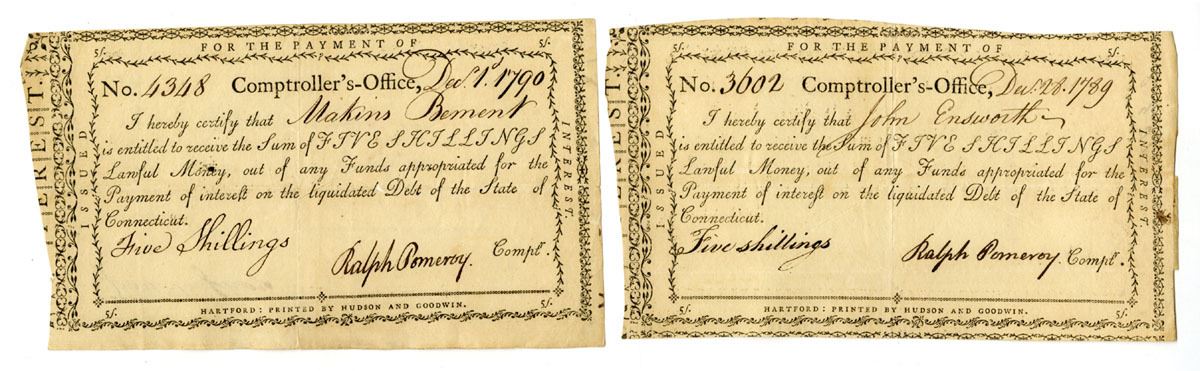 FOR THE PAYMENT OF
5/. 5/.
No. 4348 Comptroller's-Office, Decr. 1st. 1790
I hereby certify that Makins Bement
is entitled to receive the Sum of FIVE SHILLINGS
Lawful Money, out of any Funds appropriated for the
Payment of interest on the liquidated Debt of the State of
Connecticut.
Five Shillings
Ralph Pomeroy. Comptr.
ISSUED
INTEREST.
5/. 5/.
HARTFORD: PRINTED BY HUDSON AND GOODWIN.
FOR THE PAYMENT OF
5/. 5/.
No. 3602 Comptroller's-Office, Decr. 28. 1789
I hereby certify that John Ensworth
is entitled to receive the Sum of FIVE SHILLINGS
Lawful Money, out of any Funds appropriated for the
Payment of interest on the liquidated Debt of the State of
Connecticut.
Five shillings
Ralph Pomeroy. Comptr.
ISSUED
INTEREST.
5/. 5/.
HARTFORD: PRINTED BY HUDSON AND GOODWIN.